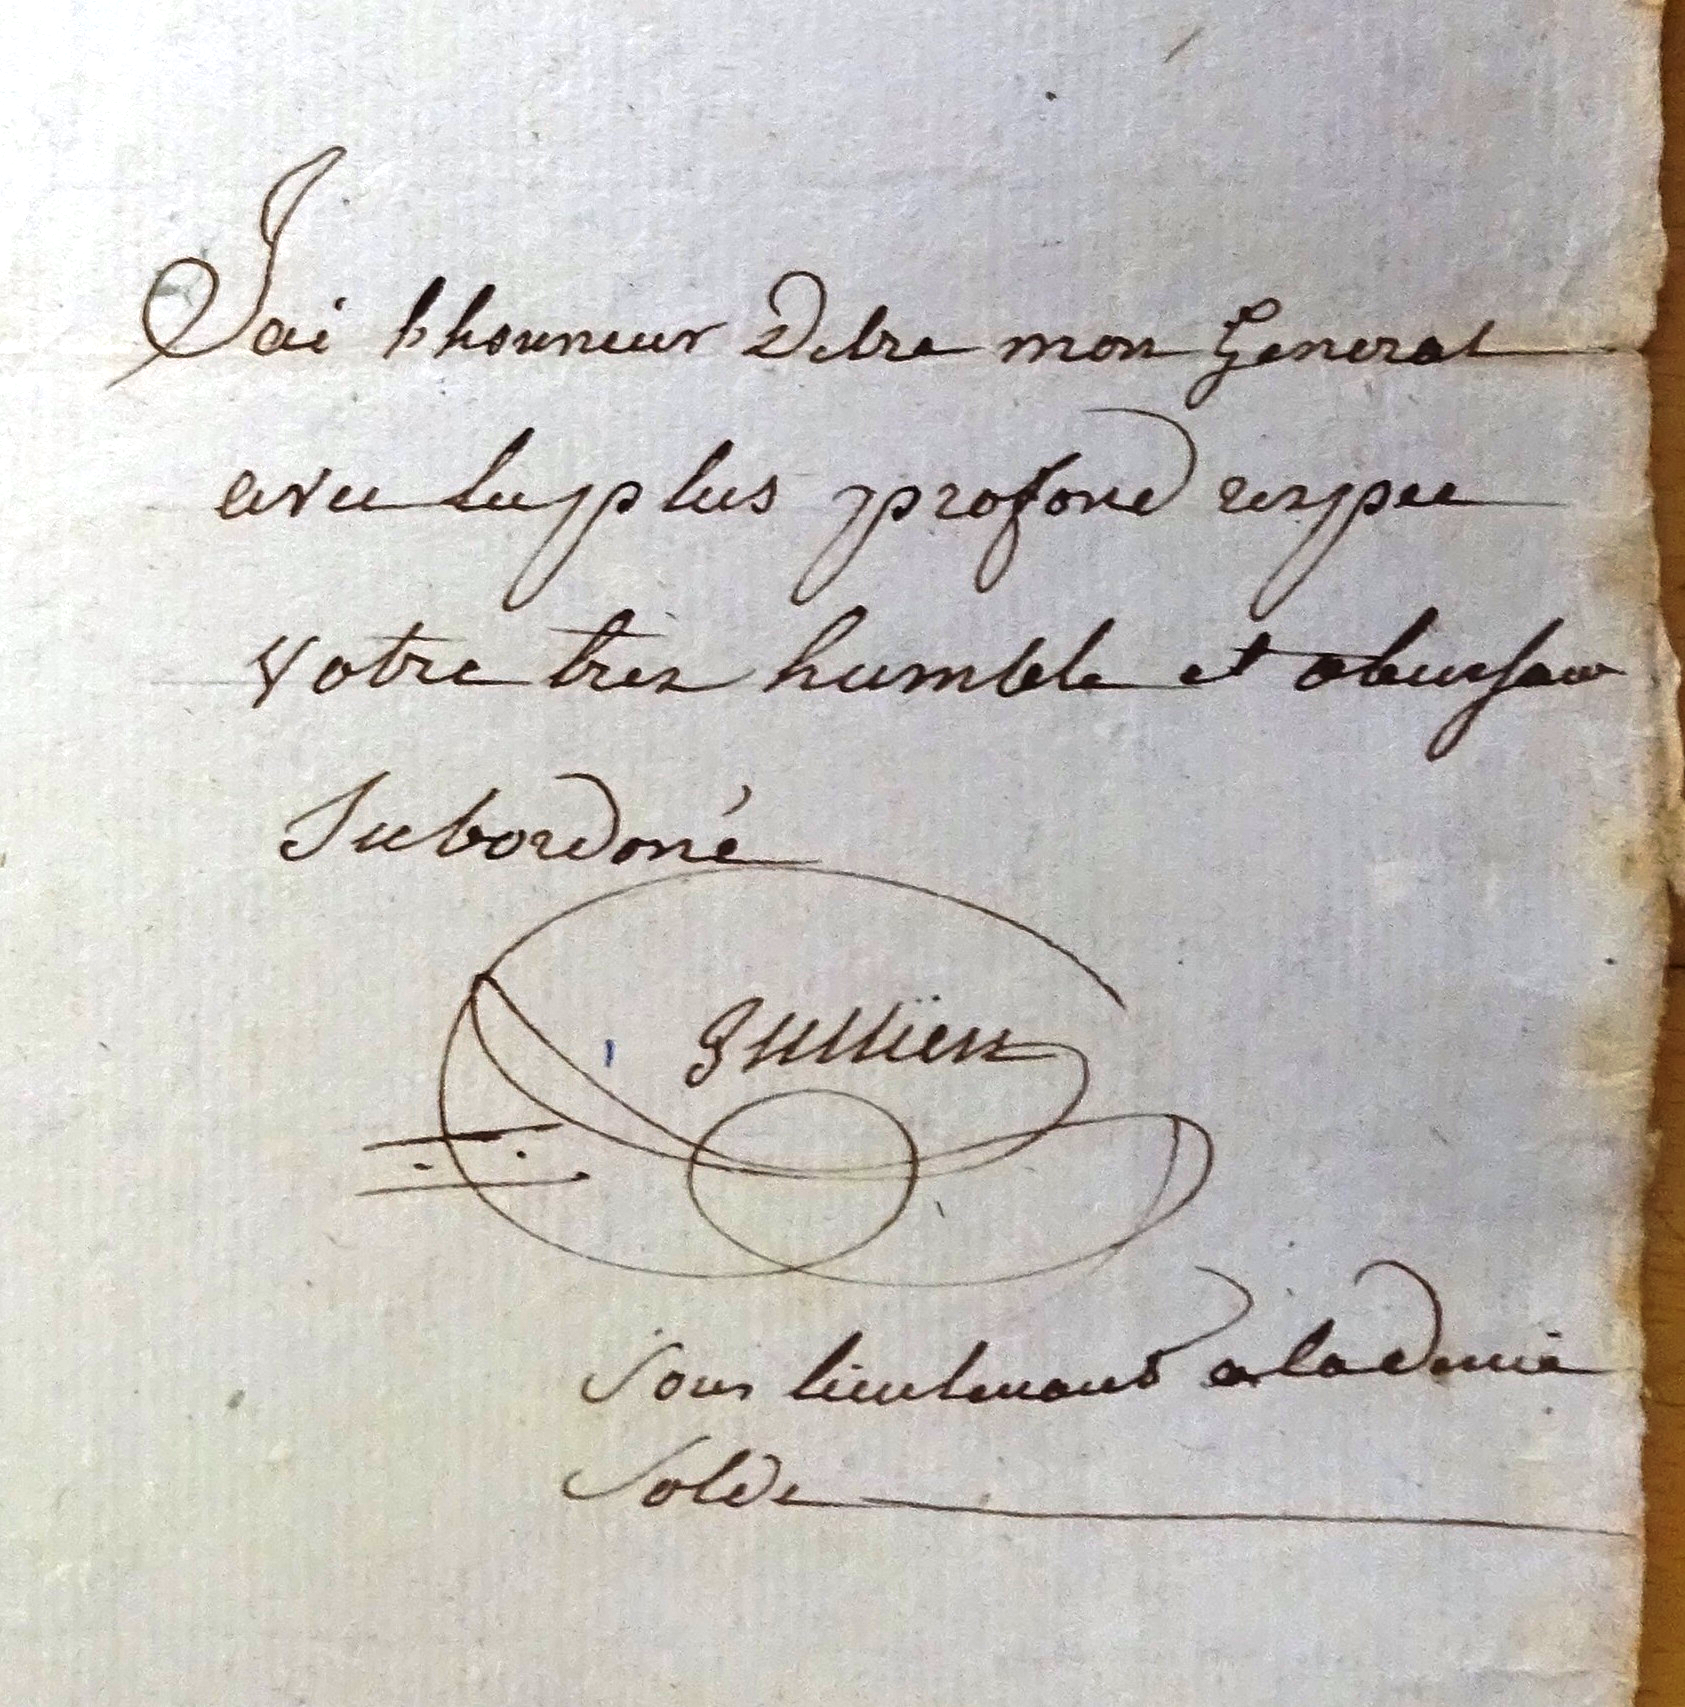 Jai lhonneur Detre mon General
avec le plus profond respec
votre tres humble et obeissan
Subordoné
Jullien
Sous lieutenant a la demie
Solde